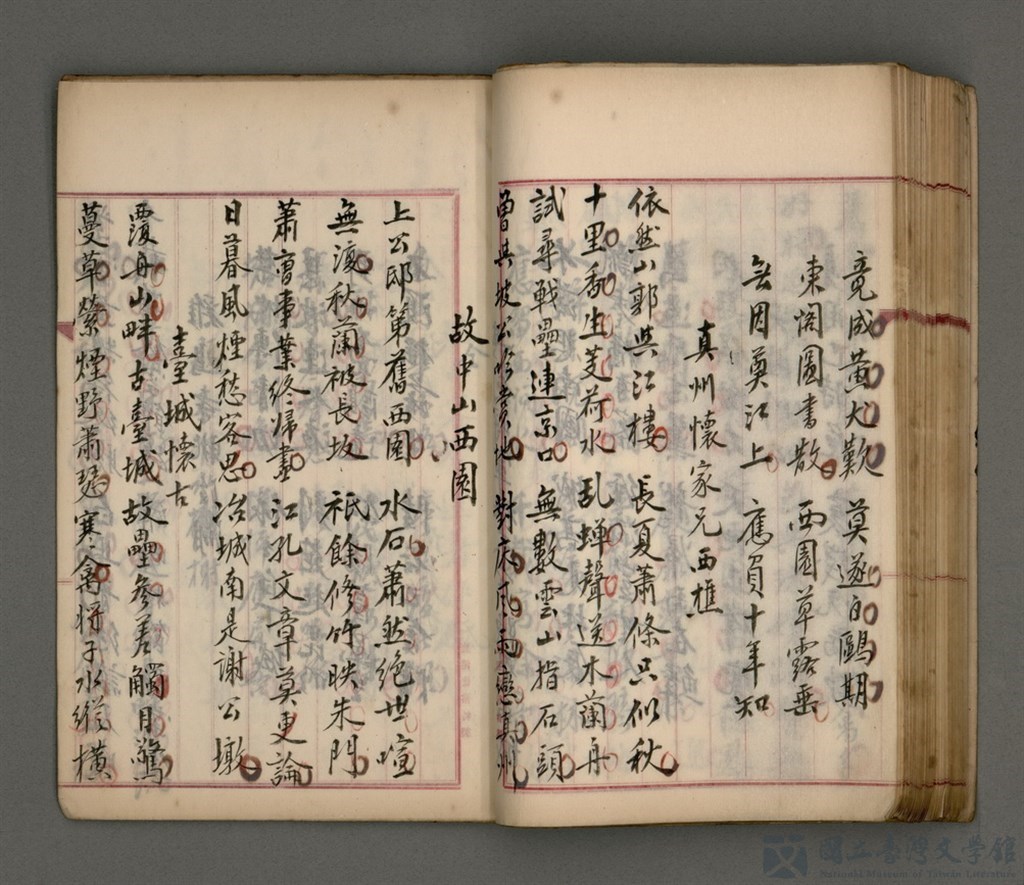 竟成黃犬歎 莫遂白鷗期
東閣圖書散 西園草露垂
無因奠江上 應負十年知
真州懷家兄西樵
依然山郭與江樓 長夏蕭條只似秋
十里香生芰荷水 乱蟬聲送木蘭舟
試尋戰壘連京口 無數雲山指石頭
曾與坡公吟賞地 對床風雨戀真州
故中山西園
上公邸第舊西園 水石蕭然絕世喧
無復秋蘭被長坂 祇餘修竹映朱門
蕭曹事業終歸盡 江孔文章莫更論
日暮風煙愁客思 冶城南是謝公墩
臺城懷古
覆舟山畔古臺城 故壘參差觸目驚
蔓草縈煙野蕭瑟 寒禽將子水縱橫
國立臺灣文學館
National Museum of Taiwan Literature